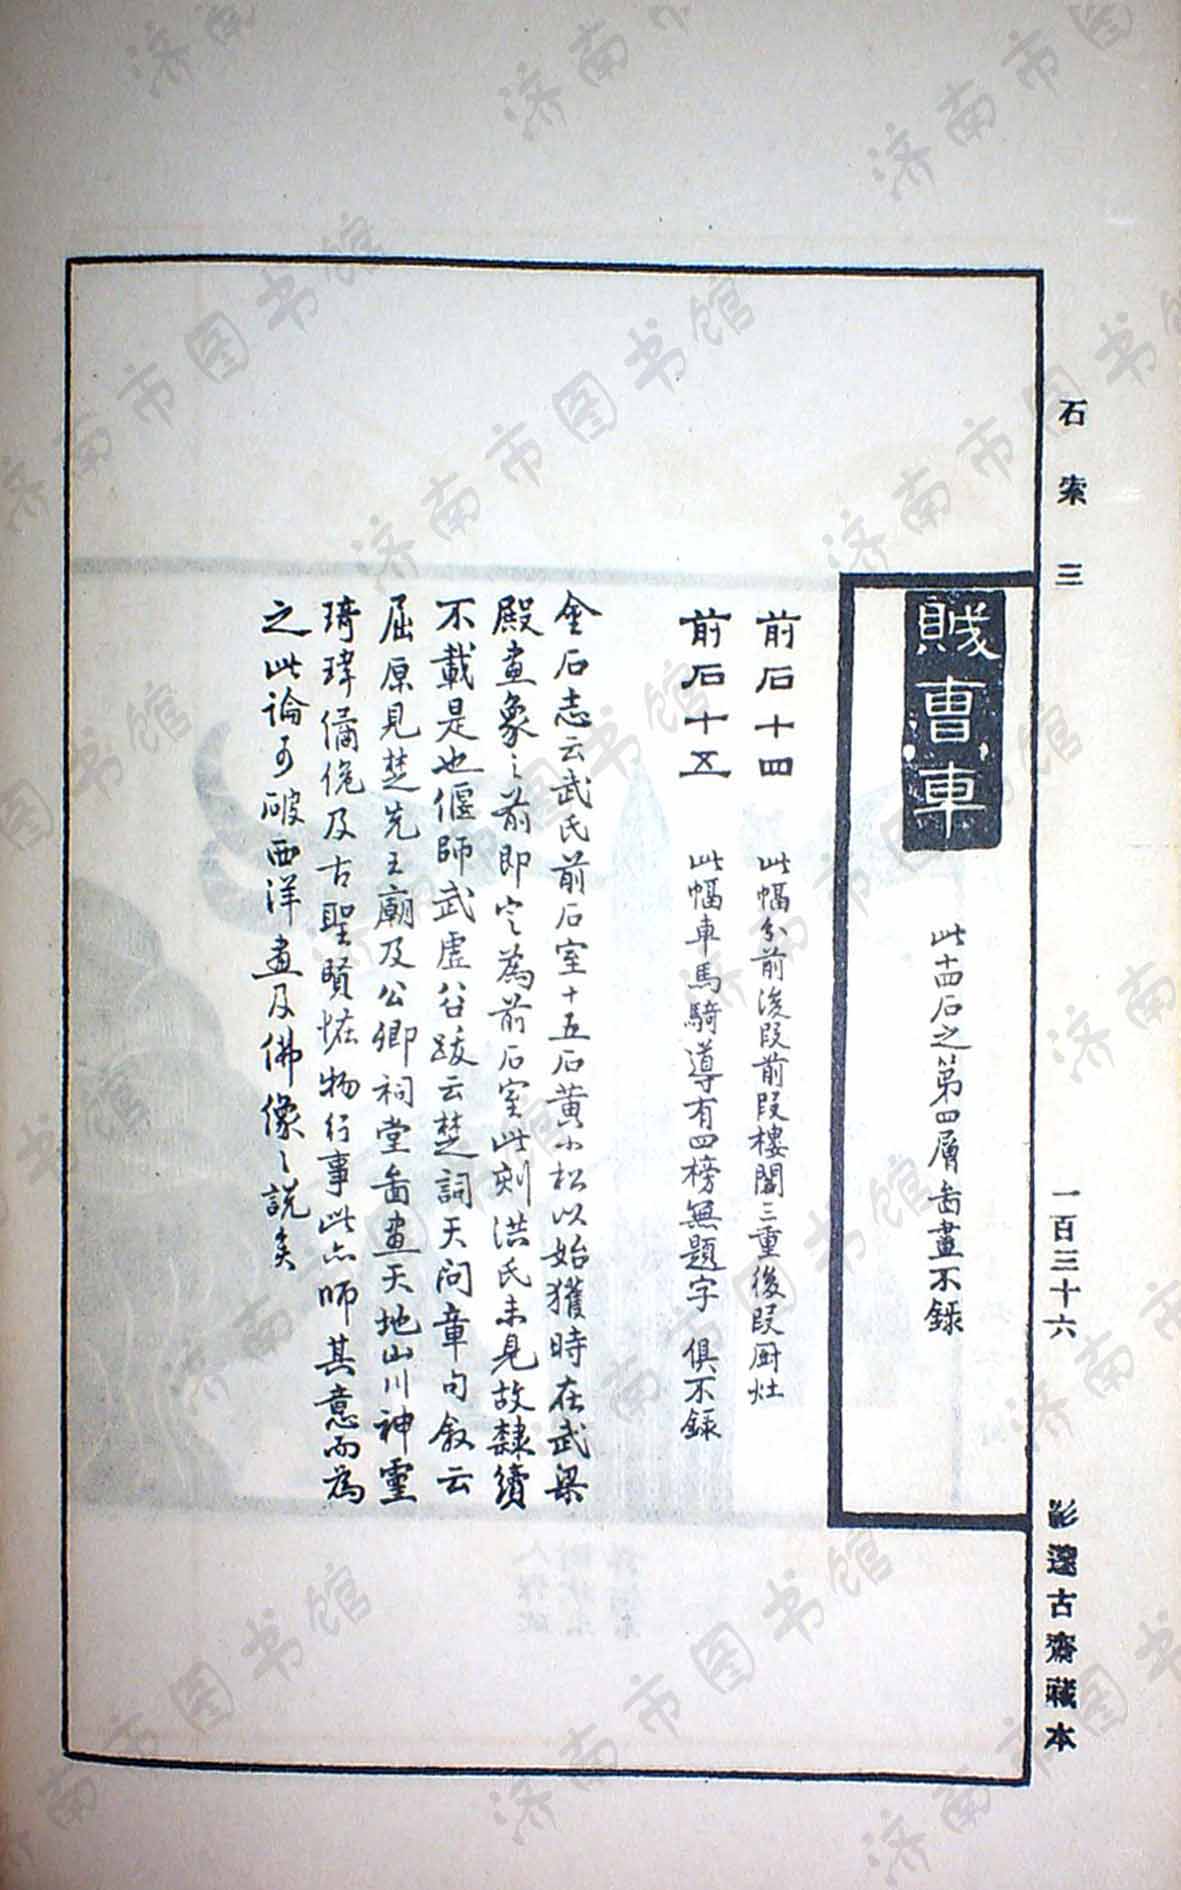 石索三
一百三十六
影邃古齋藏本
賊曹車
此十四石之第四層畫不錄
前石十四
此幅分前後段前段樓閣三重後段厨灶
前石十五
此幅車馬騎導有四榜無題字俱不錄
金石志云武氏前石室十五石黃小松以始獲時在武梁
殿畫象之前即定為前石室此刻洪氏未見故隸續
不載是也偃師武虛谷跋云楚詞天問章句敘云
屈原見楚先王廟及公卿祠堂啚畫天地山川神靈
琦瑋僑佹及古聖賢恠物行事此亦師其意而為
之此論可破西洋畫及佛像之說矣
济南市图书馆